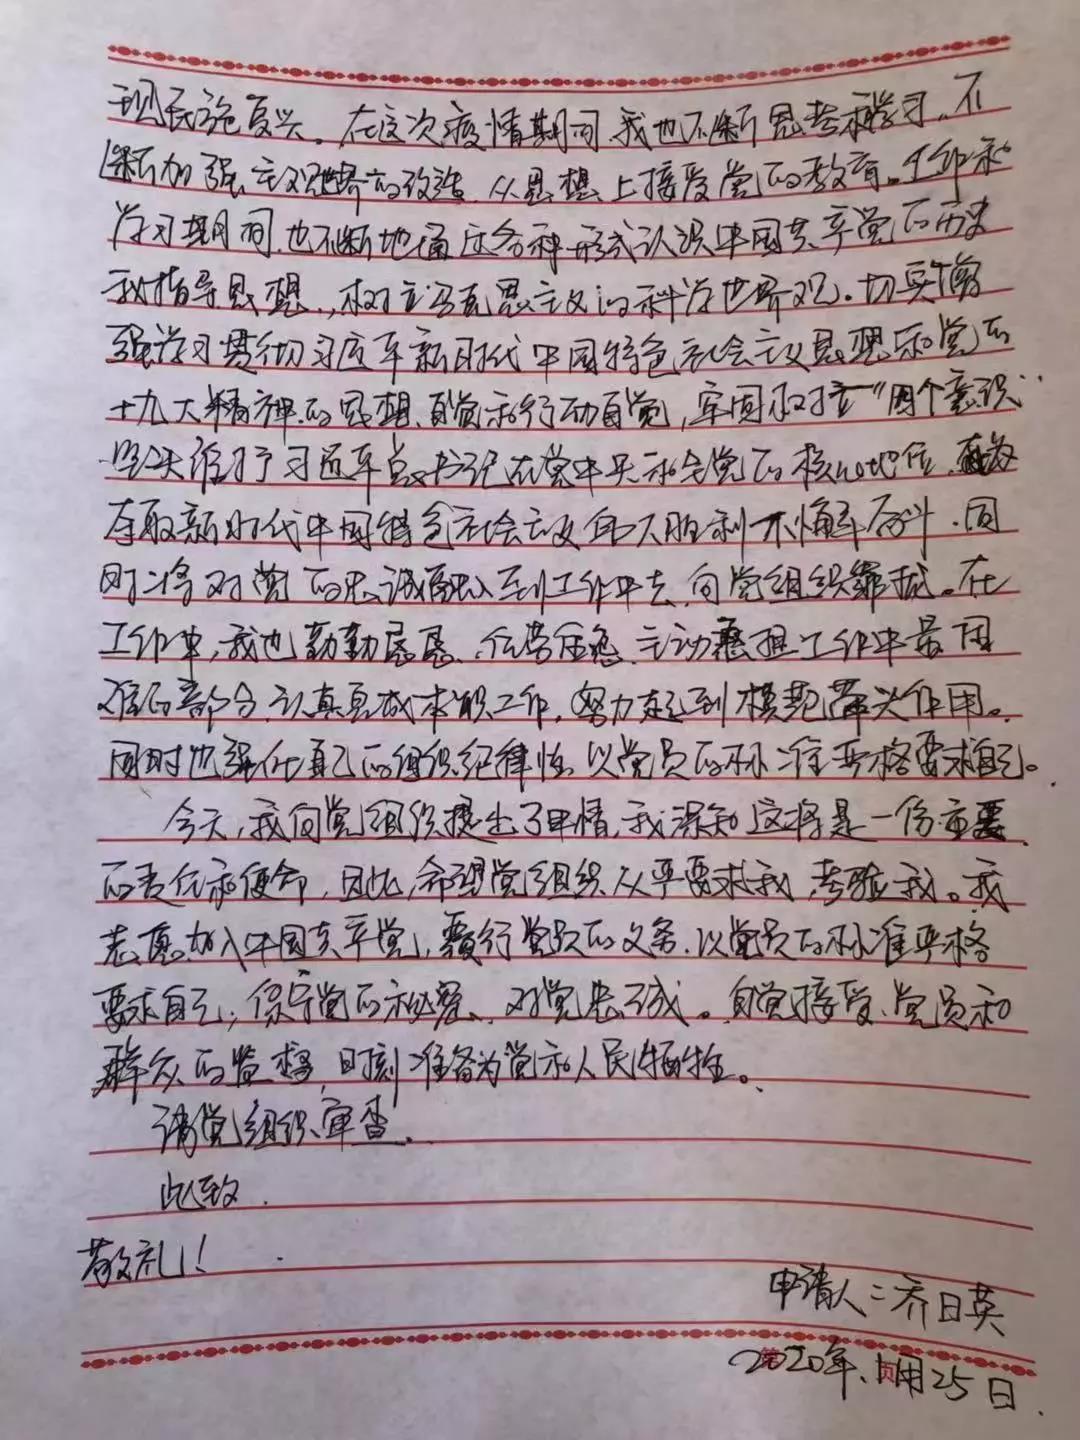 现民族复兴。在这次疫情期间,我也不断思考和学习,不
断加强主观世界的改造,从思想上接受党的教育。工作和
学习期间,也不断地通过各种形式认识中国共产党的历史
和指导思想,树立马克思主义的科学世界观。切实增
强学习贯彻习近平新时代中国特色社会主义思想和党的
十九大精神的思想自觉和行动自觉,牢固树立"四个意识"
坚决维护习近平总书记在党中央和全党的核心地位,
夺取新时代中国特色社会主义伟大胜利不懈奋斗.同
时将对党的忠诚融入到工作中去,向党组织靠拢。在
工作中,我也勤勤恳恳、任劳任怨、主动承担工作中最困
难的部分,认真完成本职工作,努力起到模范带头作用。
同时也强化自己的组织纪律性,以党员的标准严格要求自己。
今天,我向党组织提出了申情,我深知这将是一份重要
的责任和使命,因此,希望党组织从严要求我,考验我。我
志愿加入中国共产党,履行党员的义务,以党员的标准严格
要求自己,保守党的秘密、对党忠诚。自觉接受党员和
群众的监督,时刻准备为党和人民牺牲。
请党组织审查.
此致.
敬礼!
申请人:乔日英
2020年 月25日.